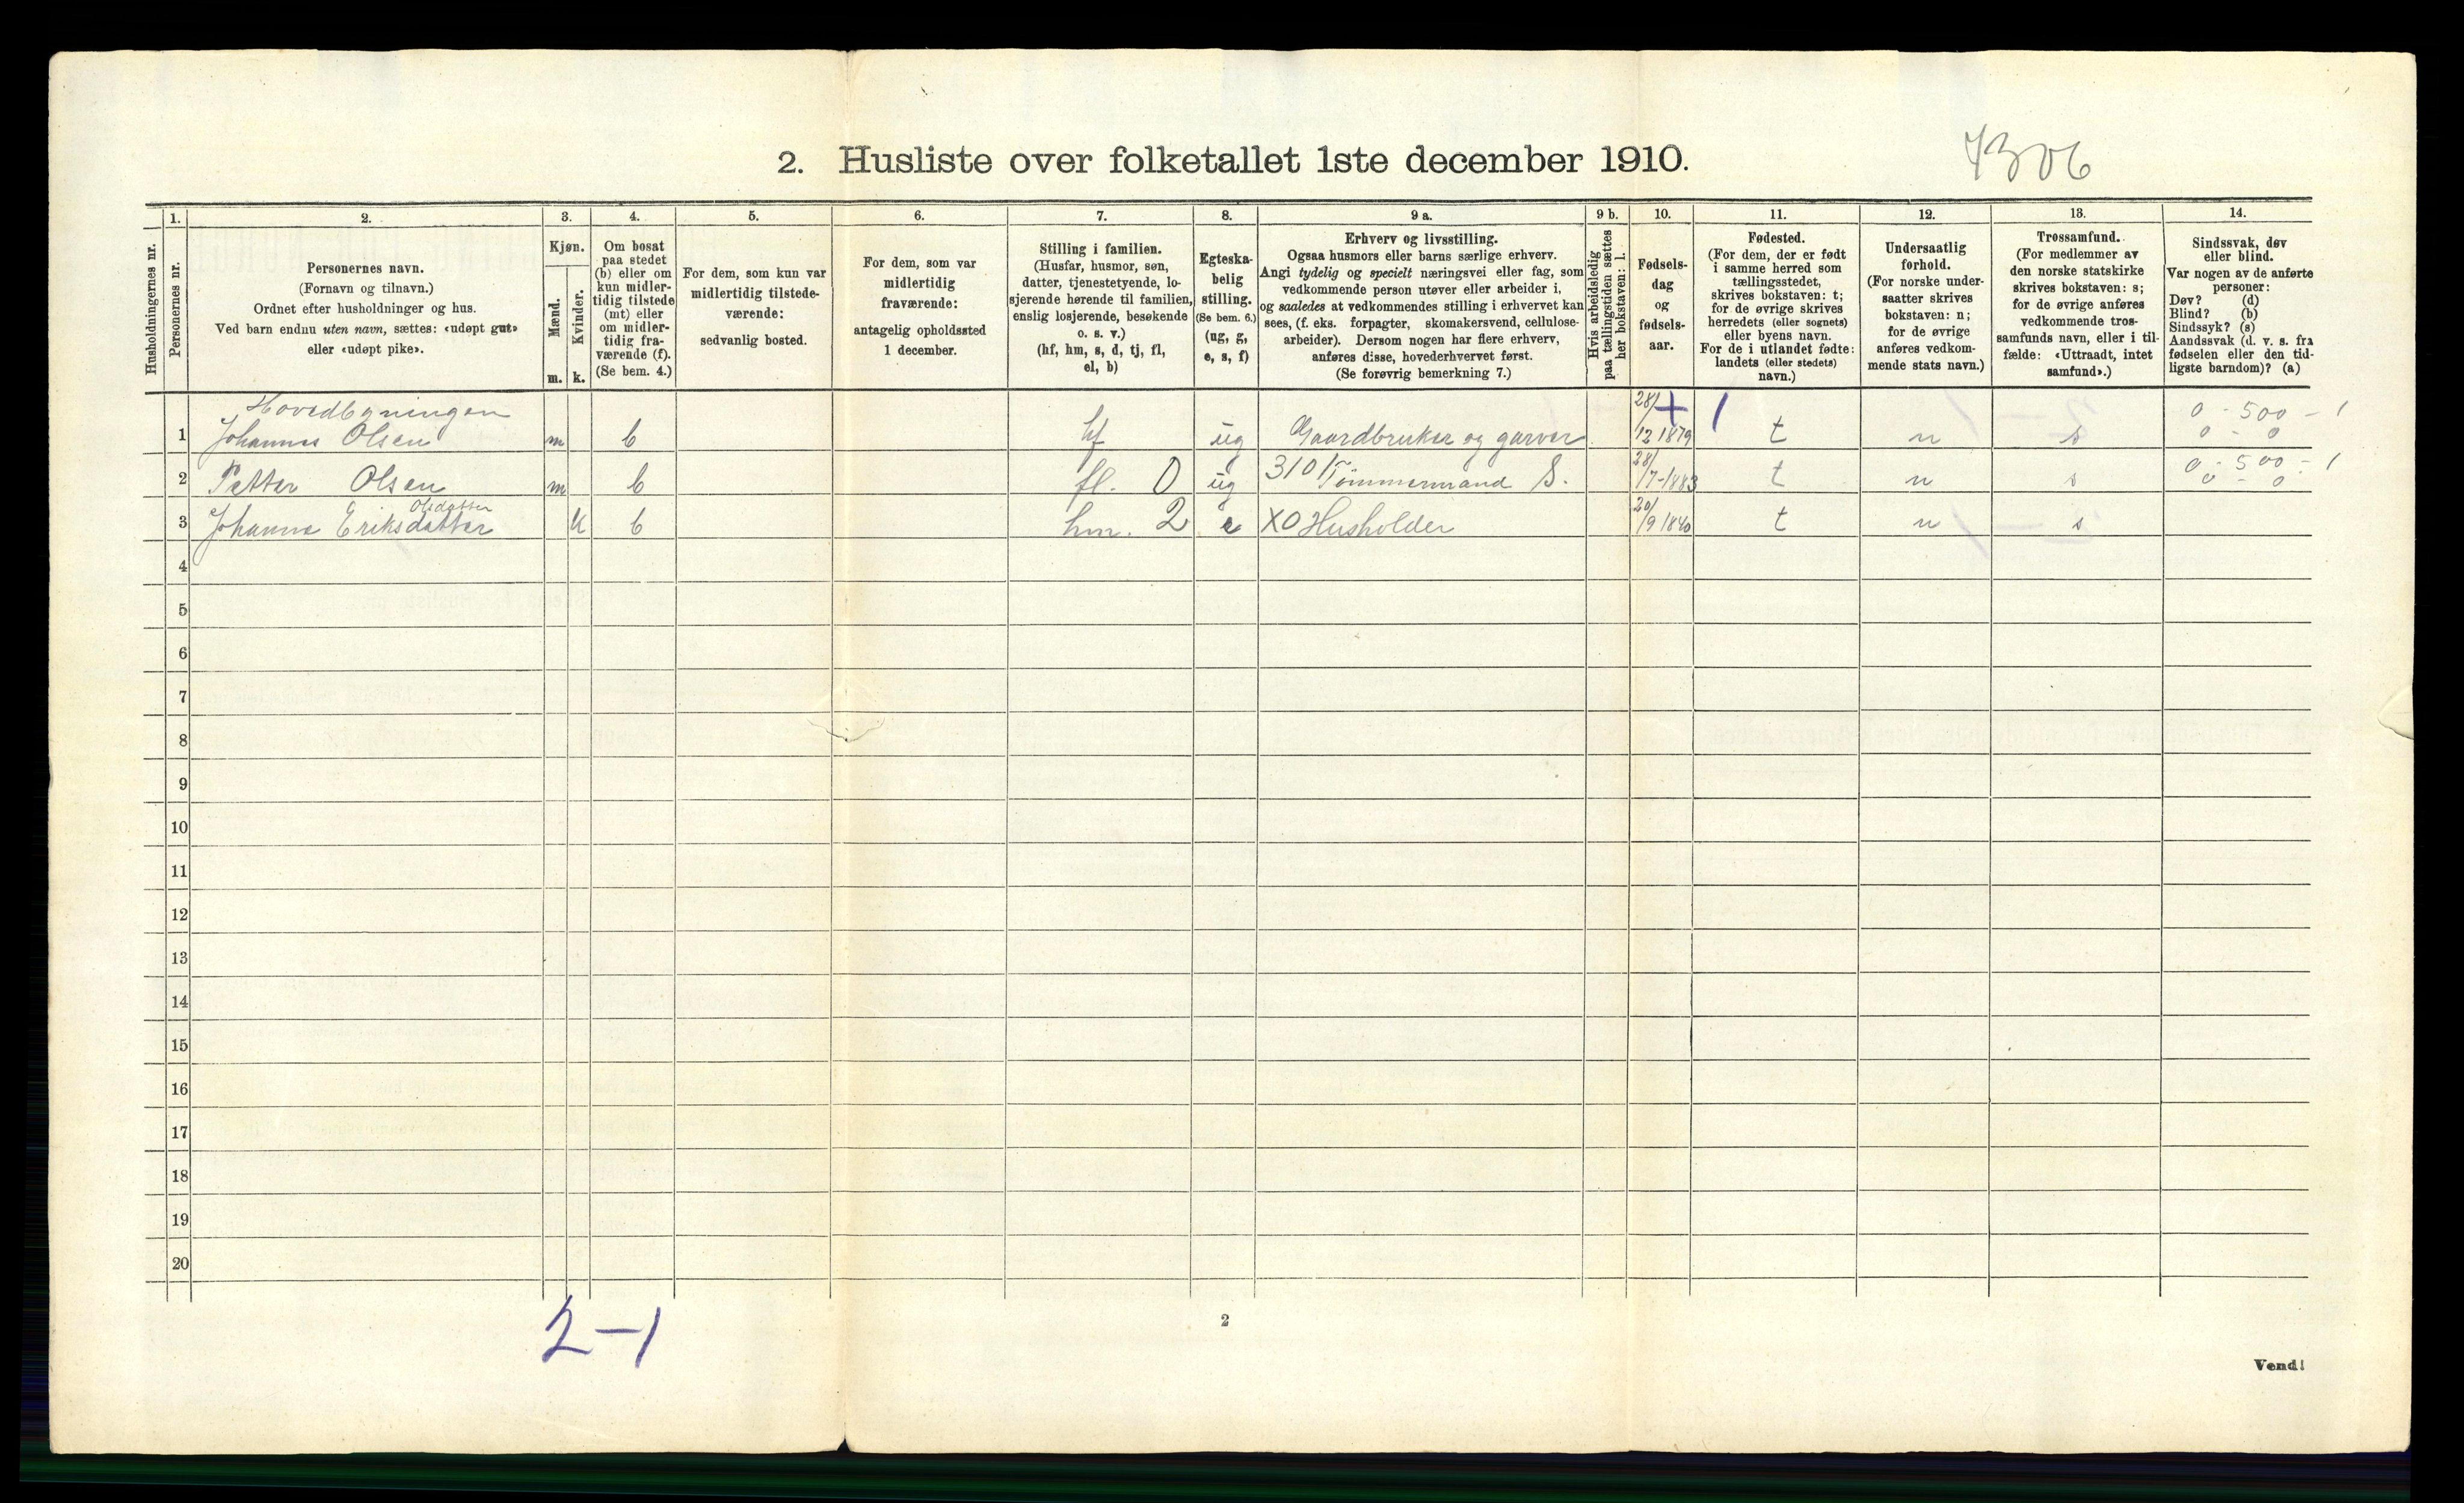 2. Husliste over folketallet 1ste december 1910.
7306
Husholdningernes nr.
1.
Personernes nr.
2.
Personernes navn.
(Fornavn og tilnavn.)
Ordnet efter husholdninger og hus.
Ved barn endnu uten navn, sættes: «udøpt gut»
eller «udøpt pike».
3.
Kjøn.
Mænd.
Kvinder.
m. k.
4.
Om bosat
paa stedet
(b) eller om
kun midler-
tidig tilstede
(mt) eller
om midler-
tidig fra-
værende (f).
(Se bem. 4.)
5.
For dem, som kun var
midlertidig tilstede-
værende:
sedvanlig bosted.
6.
For dem, som var
midlertidig
fraværende:
antagelig opholdssted
1 december.
7.
Stilling i familien.
(Husfar, husmor, søn,
datter, tjenestetyende, lo-
sjerende hørende til familien,
enslig losjerende, besøkende
o. s. v.)
(hf, hm, s, d, tj, fl,
el, b)
8.
Egteska-
belig
stilling.
(Se bem. 6.)
(ug, g,
e, s, f)
9 a.
Erhverv og livsstilling.
Ogsaa husmors eller barns særlige erhverv.
Angi tydelig og specielt næringsvei eller fag, som
vedkommende person utøver eller arbeider i,
og saaledes at vedkommendes stilling i erhvervet kan
sees, (f. eks. forpagter, skomakersvend, cellulose-
arbeider). Dersom nogen har flere erhverv,
anføres disse, hovederhvervet først.
(Se forøvrig bemerkning 7.)
9 b.
Hvis arbeidsledig
paa tællingstiden sættes
her bokstaven: l.
10.
Fødsels-
dag
og
fødsels-
aar.
11.
Fødested.
(For dem, der er født
i samme herred som
tællingsstedet,
skrives bokstaven: t;
for de øvrige skrives
herredets (eller sognets)
eller byens navn.
For de i utlandet fødte:
landets (eller stedets)
navn.)
12.
Undersaatlig
forhold.
(For norske under-
saatter skrives
bokstaven: n;
for de øvrige
anføres vedkom-
mende stats navn.)
13.
Trossamfund.
(For medlemmer av
den norske statskirke
skrives bokstaven: s;
for de øvrige anføres
vedkommende tros-
samfunds navn, eller i til-
fælde: «Uttraadt, intet
samfund».)
14.
Sindssvak, døv
eller blind.
Var nogen av de anførte
personer:
Døv? (d)
Blind? (b)
Sindssyk? (s)
Aandssvak (d. v. s. fra
fødselen eller den tid-
ligste barndom)? (a)
Hovedbygningen 28/ + 1 0 - 500 - 1
1 Johannes Olsen m b hf ug Gaardbruker og garver 12 1879 t n s 0 - 0
2 Petter Olsen m b fl. 0 ug 310 Tömmermand S. 28/7-1883 t n s 0 - 500 - 1
0 - 0
Olsdatter
3 Johanne Eriksdatter k b hm. 2 e X0 Husholder 20/9 1840 t n s
4
5
6
7
8
9
10
11
12
13
14
15
16
17
18
19
20
2-1
2
Vend!